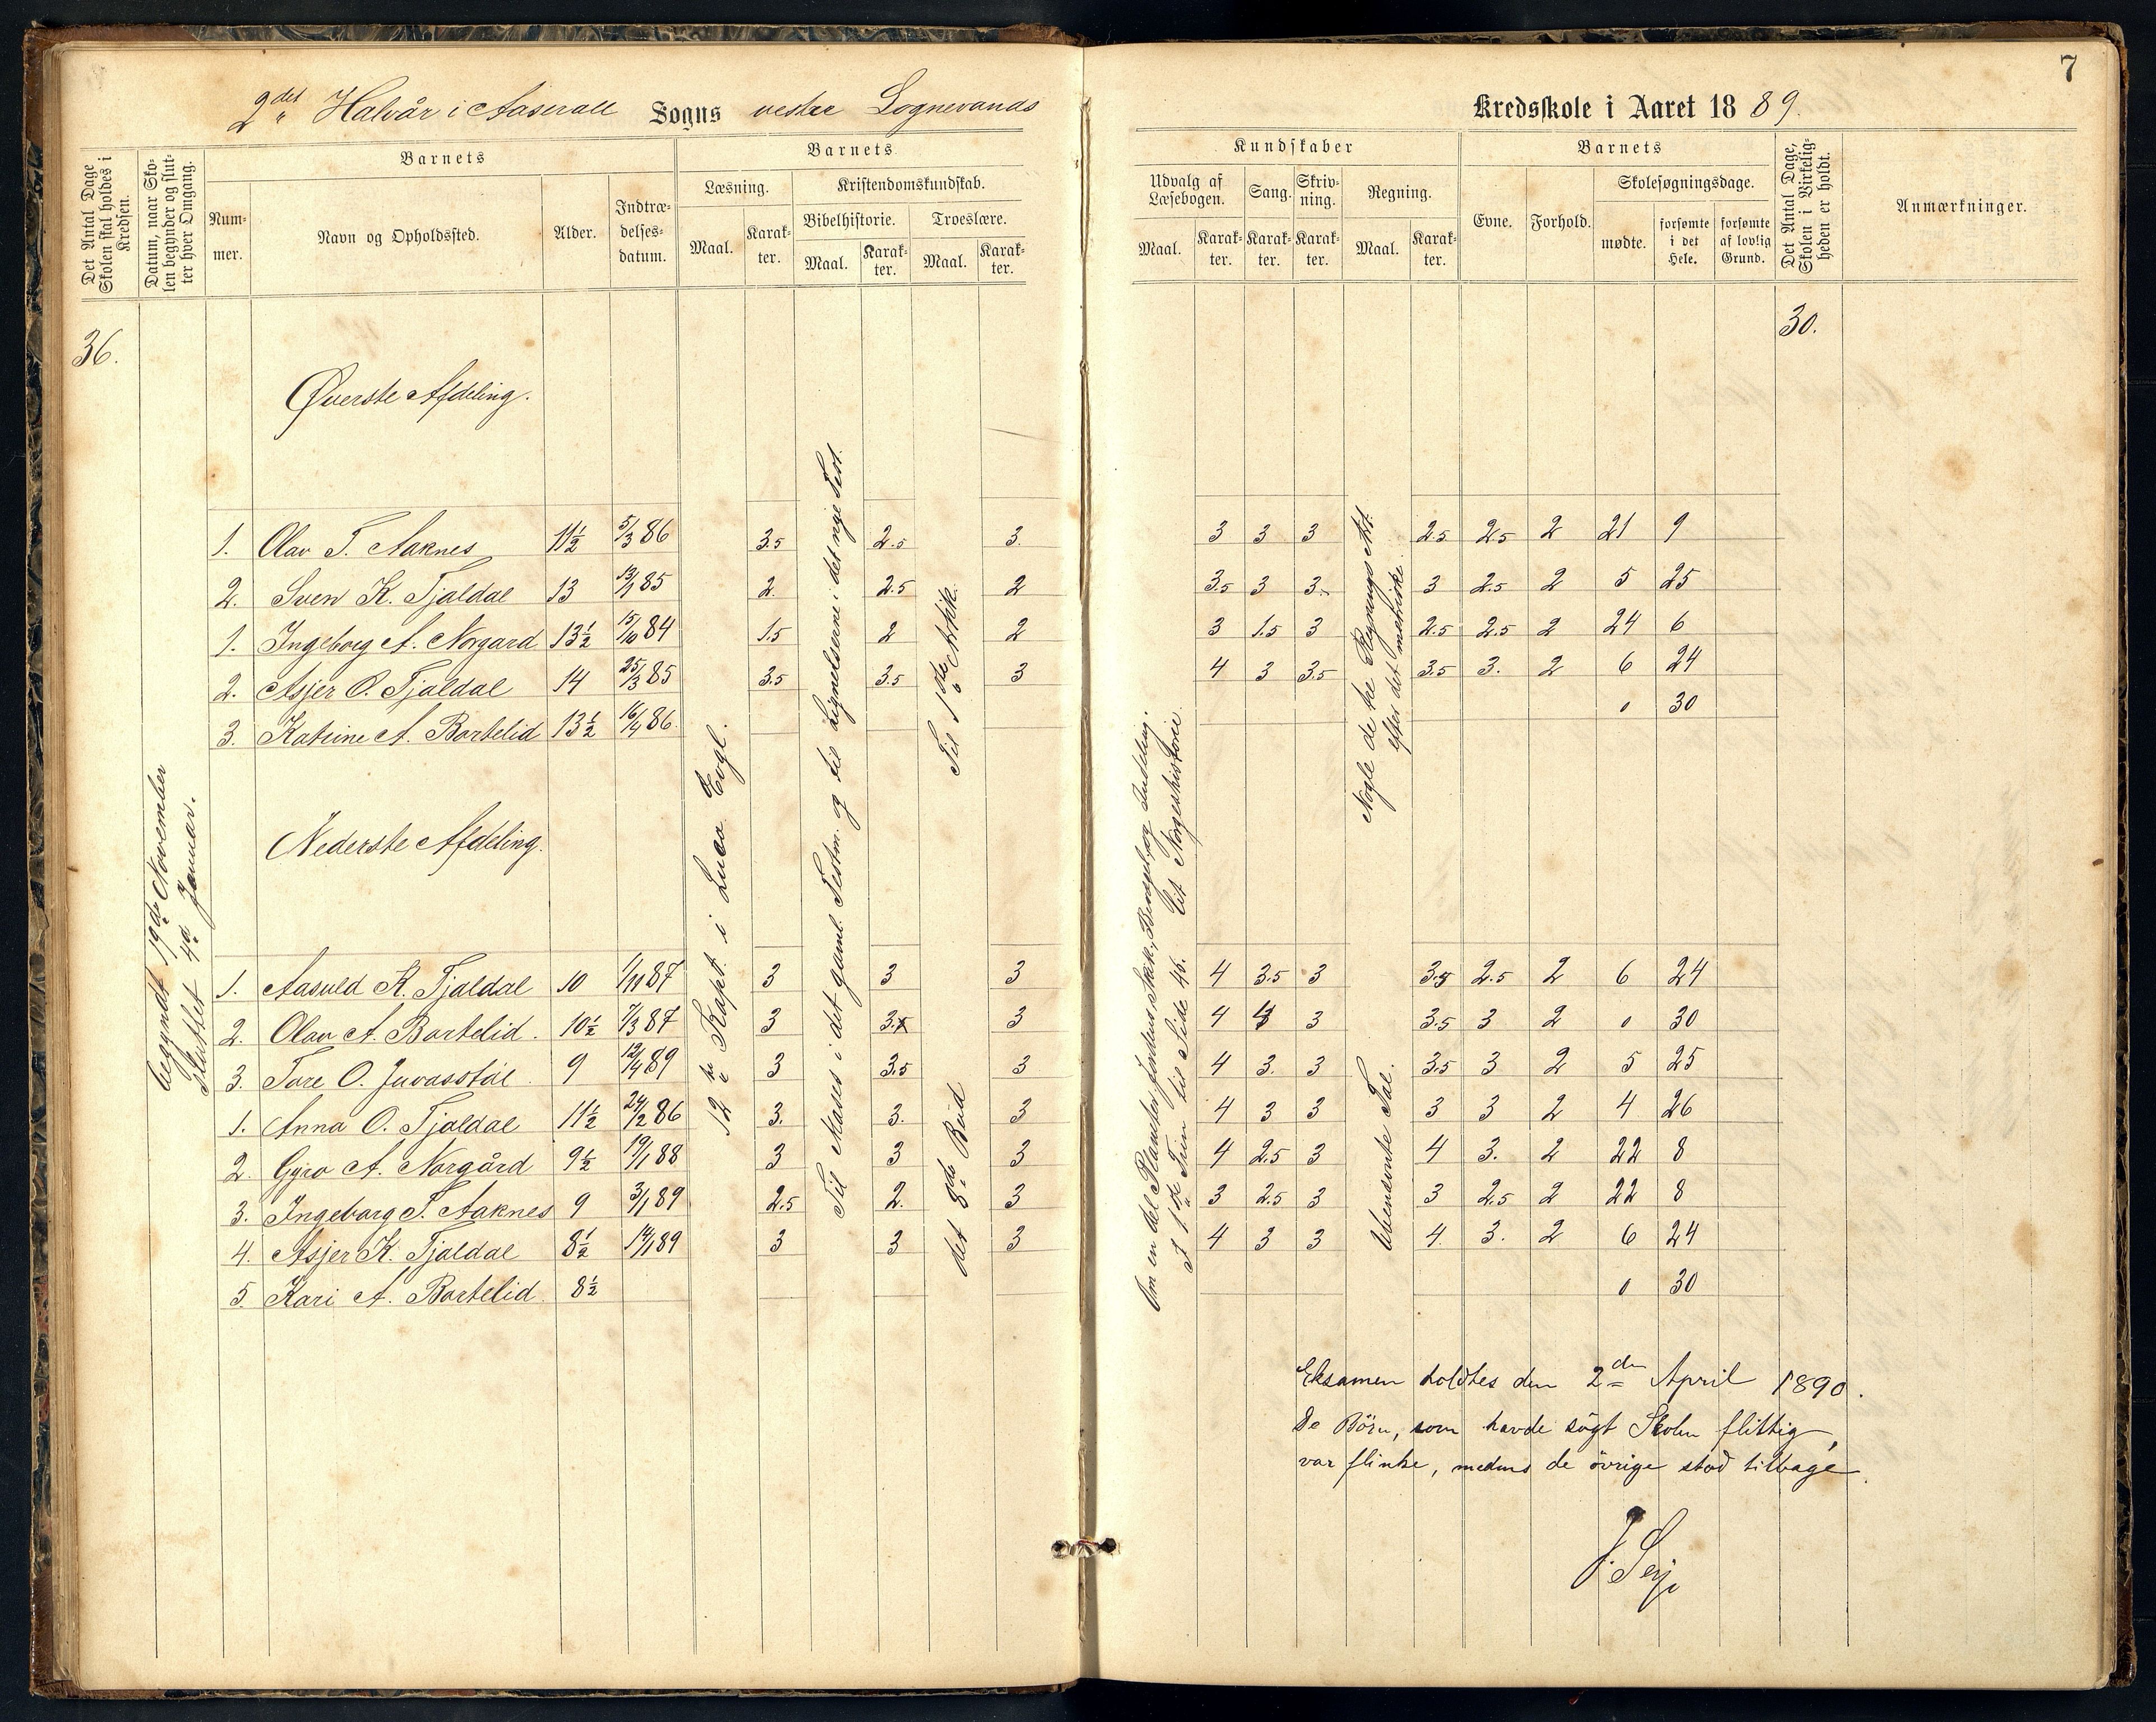 7
2det Halvår i Aaserall Sogns vestre Lognevands Kredsskole i Aaret 1889.
Det Antal Dage Skolen skal holdes i Kredsen.
Datum, naar Skolen begynder og slutter hver Omgang.
Barnets
Nummer.
Navn og Opholdssted.
Alder.
Indtrædelsesdatum.
Barnets
Læsning.
Maal.
Karakter.
Kristendomskundskab.
Bibelhistorie.
Maal.
Karakter.
Troeslære.
Maal.
Karakter.
Kundskaber
Udvalg af Læsebogen.
Maal.
Karakter.
Sang.
Karakter.
Skrivning.
Karakter.
Regning.
Maal.
Karakter.
Barnets
Evne.
Forhold.
Skolesøgningsdage.
mødte.
forsømte i det Hele.
forsømte af lovlig Grund.
Det Antal Dage, Skolen i Virkeligheden er holdt.
Anmærkninger.
36.
30.
begyndt 19de November
Sluttet 4de Januar.
12te Kapt. i Luca Evgl.
Til Moses i det gaml. Testm. og til Lignelserne i det nye Test.
Til 1ste Artkk.
det 8de Bud
Om en del Planeter, Jordens, Bevægels, og Inddeling.
A 1ste Trin til Side 46. Lit Norgeshistorie
Nogle de tre Regnings Art.
efter det metriske.
Ubenævnte Tal.
Øverste Afdeling.
1. Olav T. Aaknes 11½ 5/3 86 3.5 2.5 3. 3 3 3 2.5 2.5 2 21 9
2. Sven K. Tjaldal 13 13/1 85 2. 2.5 2 3.5 3 3. 3 2.5 2 5 25
1. Ingeborg A. Norgard 13½ 15/10 84 1.5 2 2 3 1.5 3 2.5 2.5 2 24 6
2. Asjer O. Tjaldal 14 25/3 85 3.5 3.5 3 4 3 3.5 3.5 3. 2 6 24
3. Katrine A. Bortelid 13½ 16/4 86. 0 30
Nederste Afdeling.
1. Aasuld K. Tjaldal 10 1/11 87 3 3 3 4 3.5 3 3.5 2.5 2 6 24
2. Olav A. Bortelid. 10½ 7/3 87 3 3. 3 4 4 3 3.5 3 2 0 30
3. Tore O. Juvasstøl 9 12/4 89 3 3.5 3 4 3. 3 3.5 3 2 5 25
1. Anna O. Tjaldal 11½ 24/2 86 3. 3. 3 4 3 3 3 3 2 4 26
2. Gyro A. Norgård 9½ 19/1 88 3 3 3 4 2.5 3 4 3. 2 22 8
3. Ingeborg T. Aaknes 9 3/1 89 2.5 2. 3 3 2.5 3 3 2.5 2 22 8
4. Asjer K. Tjaldal 8½ 14/1 89 3 3 3 4 3 3 4 3. 2 6 24
5. Kari A. Bortelid 8½ 0 30
Eksamen holdtes den 2den April 1890.
De Börn, som havde sögt Skolen flittig,
var flinke, medens de övrige stod tilbage.